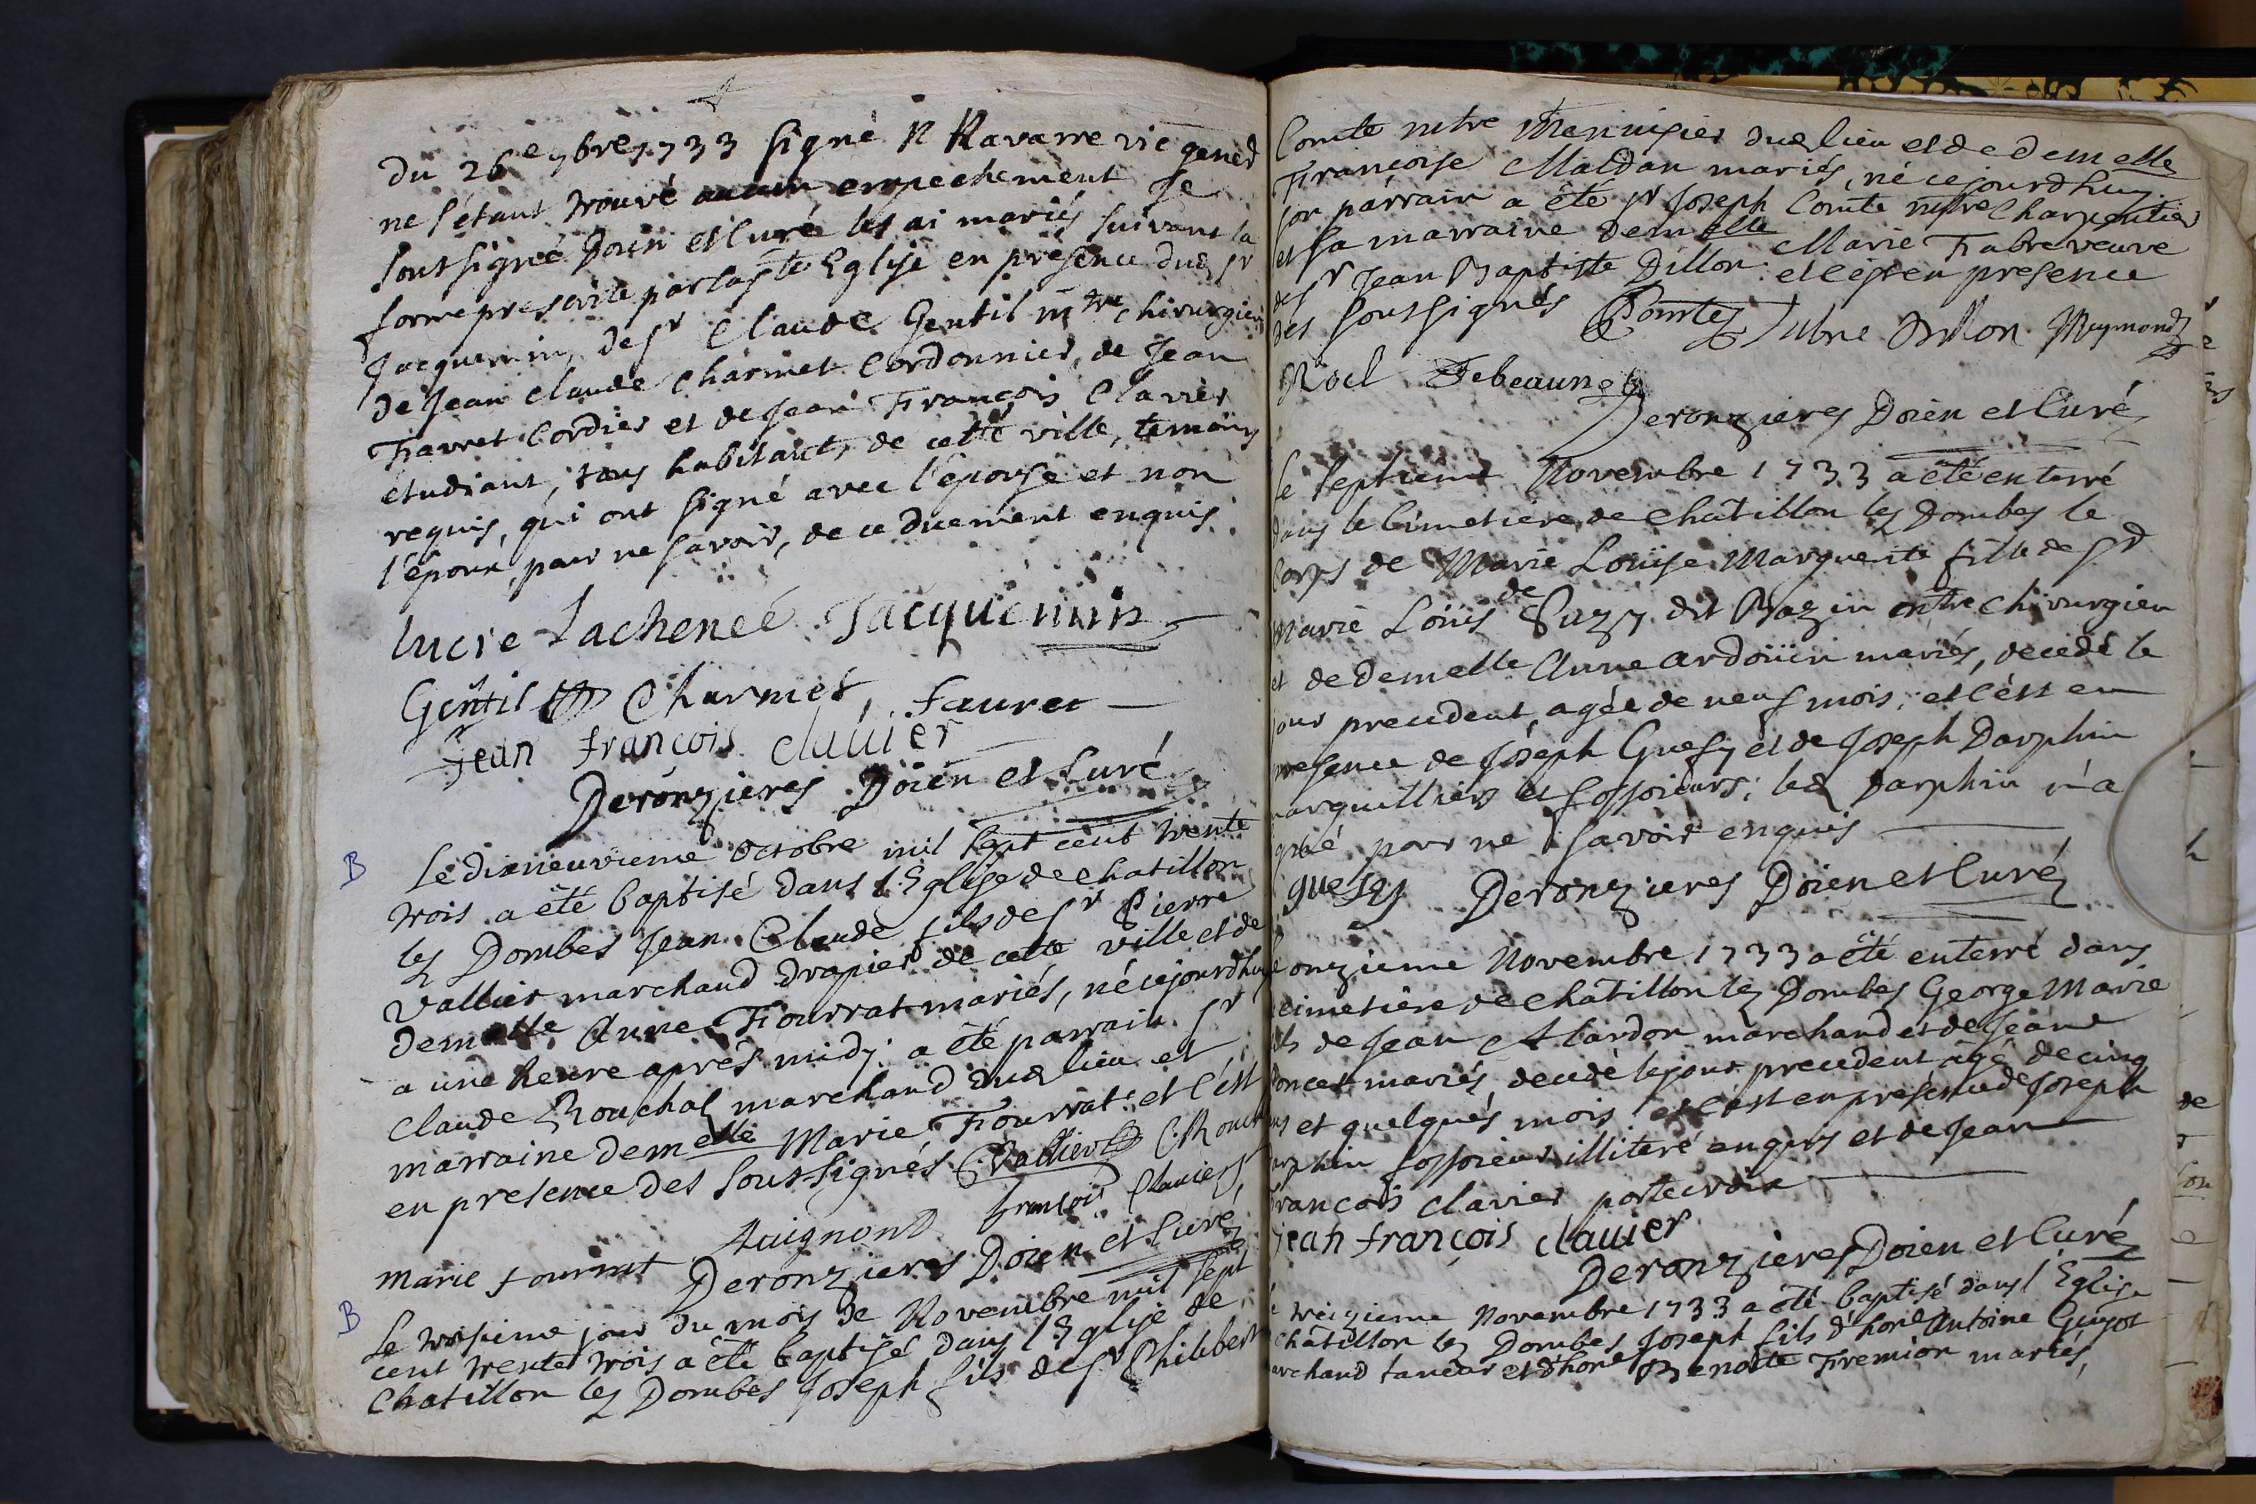 Du 26e 7bre 1733 signé N Navarre vic gened
ne s'étant trouvé aucun empechement je
soussigné Doien et Curé les ai mariés suivant la
forme prescrite par la Ste Eglise en présence dud Sr
Jacquemin, de Sr Claude Gentil mtre chirurgien
de Jean Claude Charmet Cordonnier, de Jean
Favret Cordier et de Jean François Clavier
étudiant, tous habitants de cette ville, temoins
requis, qui ont signé avec l'épouse et non
l'époux, pour ne savoir, de ce duement enquis
lucie Lacheneé Jacquemin
Gentil Charmet, fauret
Jean françois clavier
Deronzieres Doien et Curé
B Le dixneuvieme octobre mil sept cent trente
trois a été baptisé dans l'Eglise de chatillon
lez Dombes Jean Claude fils de Sr Pierre
Vallier marchand drapier de cette ville et de
demelle Anne Fourrat mariés, né cejourdhuy
a une heure aprés midy. a été parrain Sr
Claude Rouchal marchand dud lieu et
marraine demelle Marie Fourrat et c'est
en presence des soussignés Vallier C. Rouch
Auignond françois Clavier
Marie fourrat Deronzieres Doien et Curé
B Le troisieme jour du mois de Novembre mil sept
cent trente trois a été baptisé dans l'Eglise de
Chatillon lez Dombes Joseph fils de Sr Philibert
Comte mtre Menuisier dud lieu et de demelle
Françoise Maldan mariés, né cejourdhuy
son parrain a été Sr Joseph Comte mtre Charpentier
et sa marraine demelle Marie Fabre veuve
de Sr Jean Baptiste Dillon et c'est en presence
des soussignés Comte fabre Dillon Meymond
Noel Febeaune
Deronzieres Doien et Curé
Le septieme Novembre 1733 a été enterré
dans le Cimetiere de Châtillon lez Dombes le
Corps de Marie Loüise Marguerite fille de Sr
Marie Loüis de Suzy dit Bazin mtre chirurgien
et de demelle Anne ardoüin mariés, decedé le
jour precedent, agée de neuf mois, et c'est en
presence de Joseph Guesy et de Joseph Darphin
marguilliers et fossoieurs; led Darphin n'a
signé pour ne savoir enquis
guesy Deronzieres Doien et Curé
Le onzieme Novembre 1733 a été enterré dans
le cimetiere de Châtillon lez Dombes George Marie
fils de Jean Alardon marchand et de Jeane
Poncet mariés decedé le jour precedent âgé de cinq
ans et quelqués mois et c'est en présence de Joseph
Darphin fossoieur illiteré enquis et de Jean
François Clavier portecroix
Jean françois clavier
Deronzieres Doien et Curé
Le treizieme Novembre 1733 a été baptisé dans l'Eglise
Châtillon lez Dombes Joseph fils d'hone Antoine Guyot
marchand taneur et d'hone Benoite Fremion mariés,